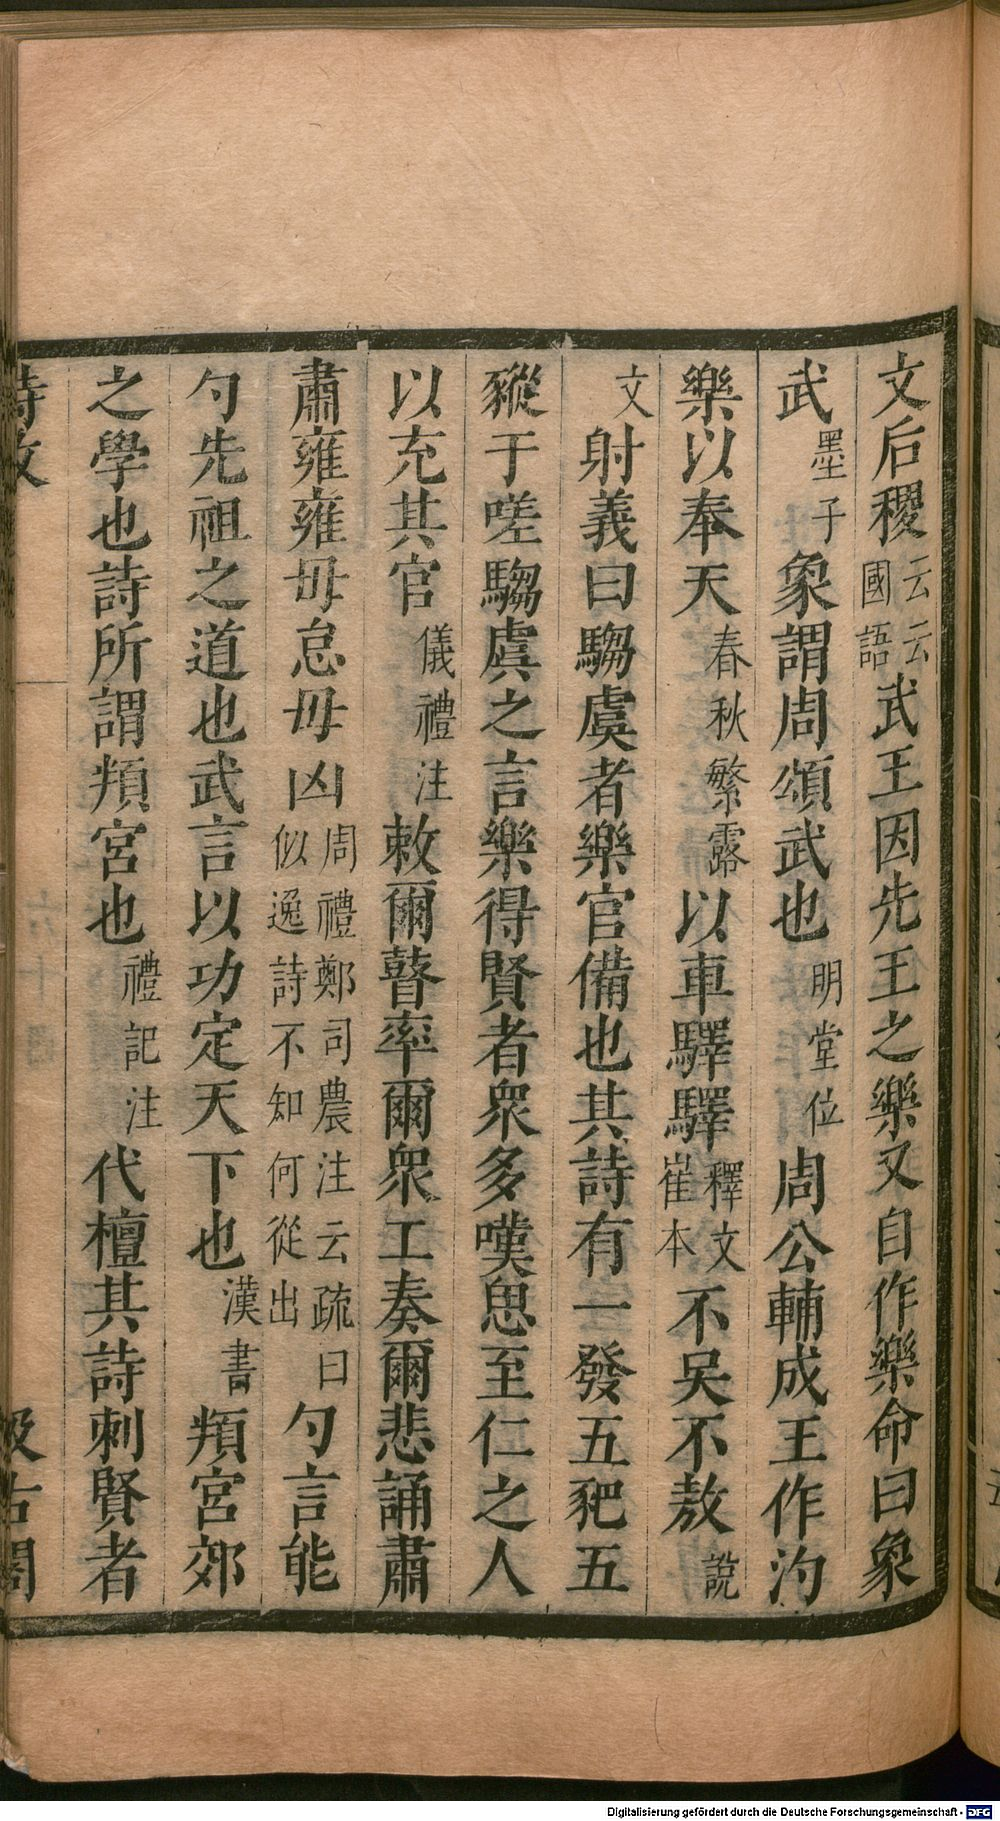 文后稷云云國語武王因先王之樂又自作樂命曰象
武墨子象謂周頌武也明堂位周公輔成王作汋
樂以奉天春秋繁露以車驛驛釋文崔本不吳不敖說
文射義曰騶虞者樂官備也其詩有一發五豝五
豵于嗟騶虞之言樂得賢者眾多嘆思至仁之人
以充其官儀禮注敕爾瞽率爾眾工奏爾悲誦肅
肅雍雍毋怠毋凶周禮鄭司農注云疏曰似逸詩不知何從出勺言能
勺先祖之道也武言以功定天下也漢書頖宮郊
之學也詩所謂頖宮也禮記注代檀其詩刺賢者
詩攷
汲古閣
Digitalisierung gefördert durch die Deutsche Forschungsgemeinschaft - DFG